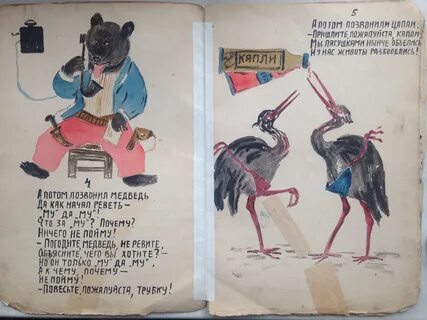 А ПОТОМ ПОЗВОНИЛ МЕДВЕДЬ
ДА КАК НАЧАЛ РЕВЕТЬ –
"МУ" ДА "МУ"!
ЧТО ЗА "МУ"? ПОЧЕМУ?
НИЧЕГО НЕ ПОЙМУ!
– ПОГОДИТЕ, МЕДВЕДЬ, НЕ РЕВИТЕ,
ОБЪЯСНИТЕ, ЧЕГО ВЫ ХОТИТЕ? –
НО ОН ТОЛЬКО "МУ" ДА "МУ",
А К ЧЕМУ, ПОЧЕМУ –
НЕ ПОЙМУ!
– ПОВЕСЬТЕ, ПОЖАЛУЙСТА, ТРУБКУ!
4
5
А ПОТОМ ПОЗВОНИЛИ ЦАПЛИ:
– ПРИШЛИТЕ, ПОЖАЛУЙСТА, КАПЛИ:
МЫ ЛЯГУШКАМИ НЫНЧЕ ОБЪЕЛИСЬ,
И У НАС ЖИВОТЫ РАЗБОЛЕЛИСЬ!
КАПЛИ